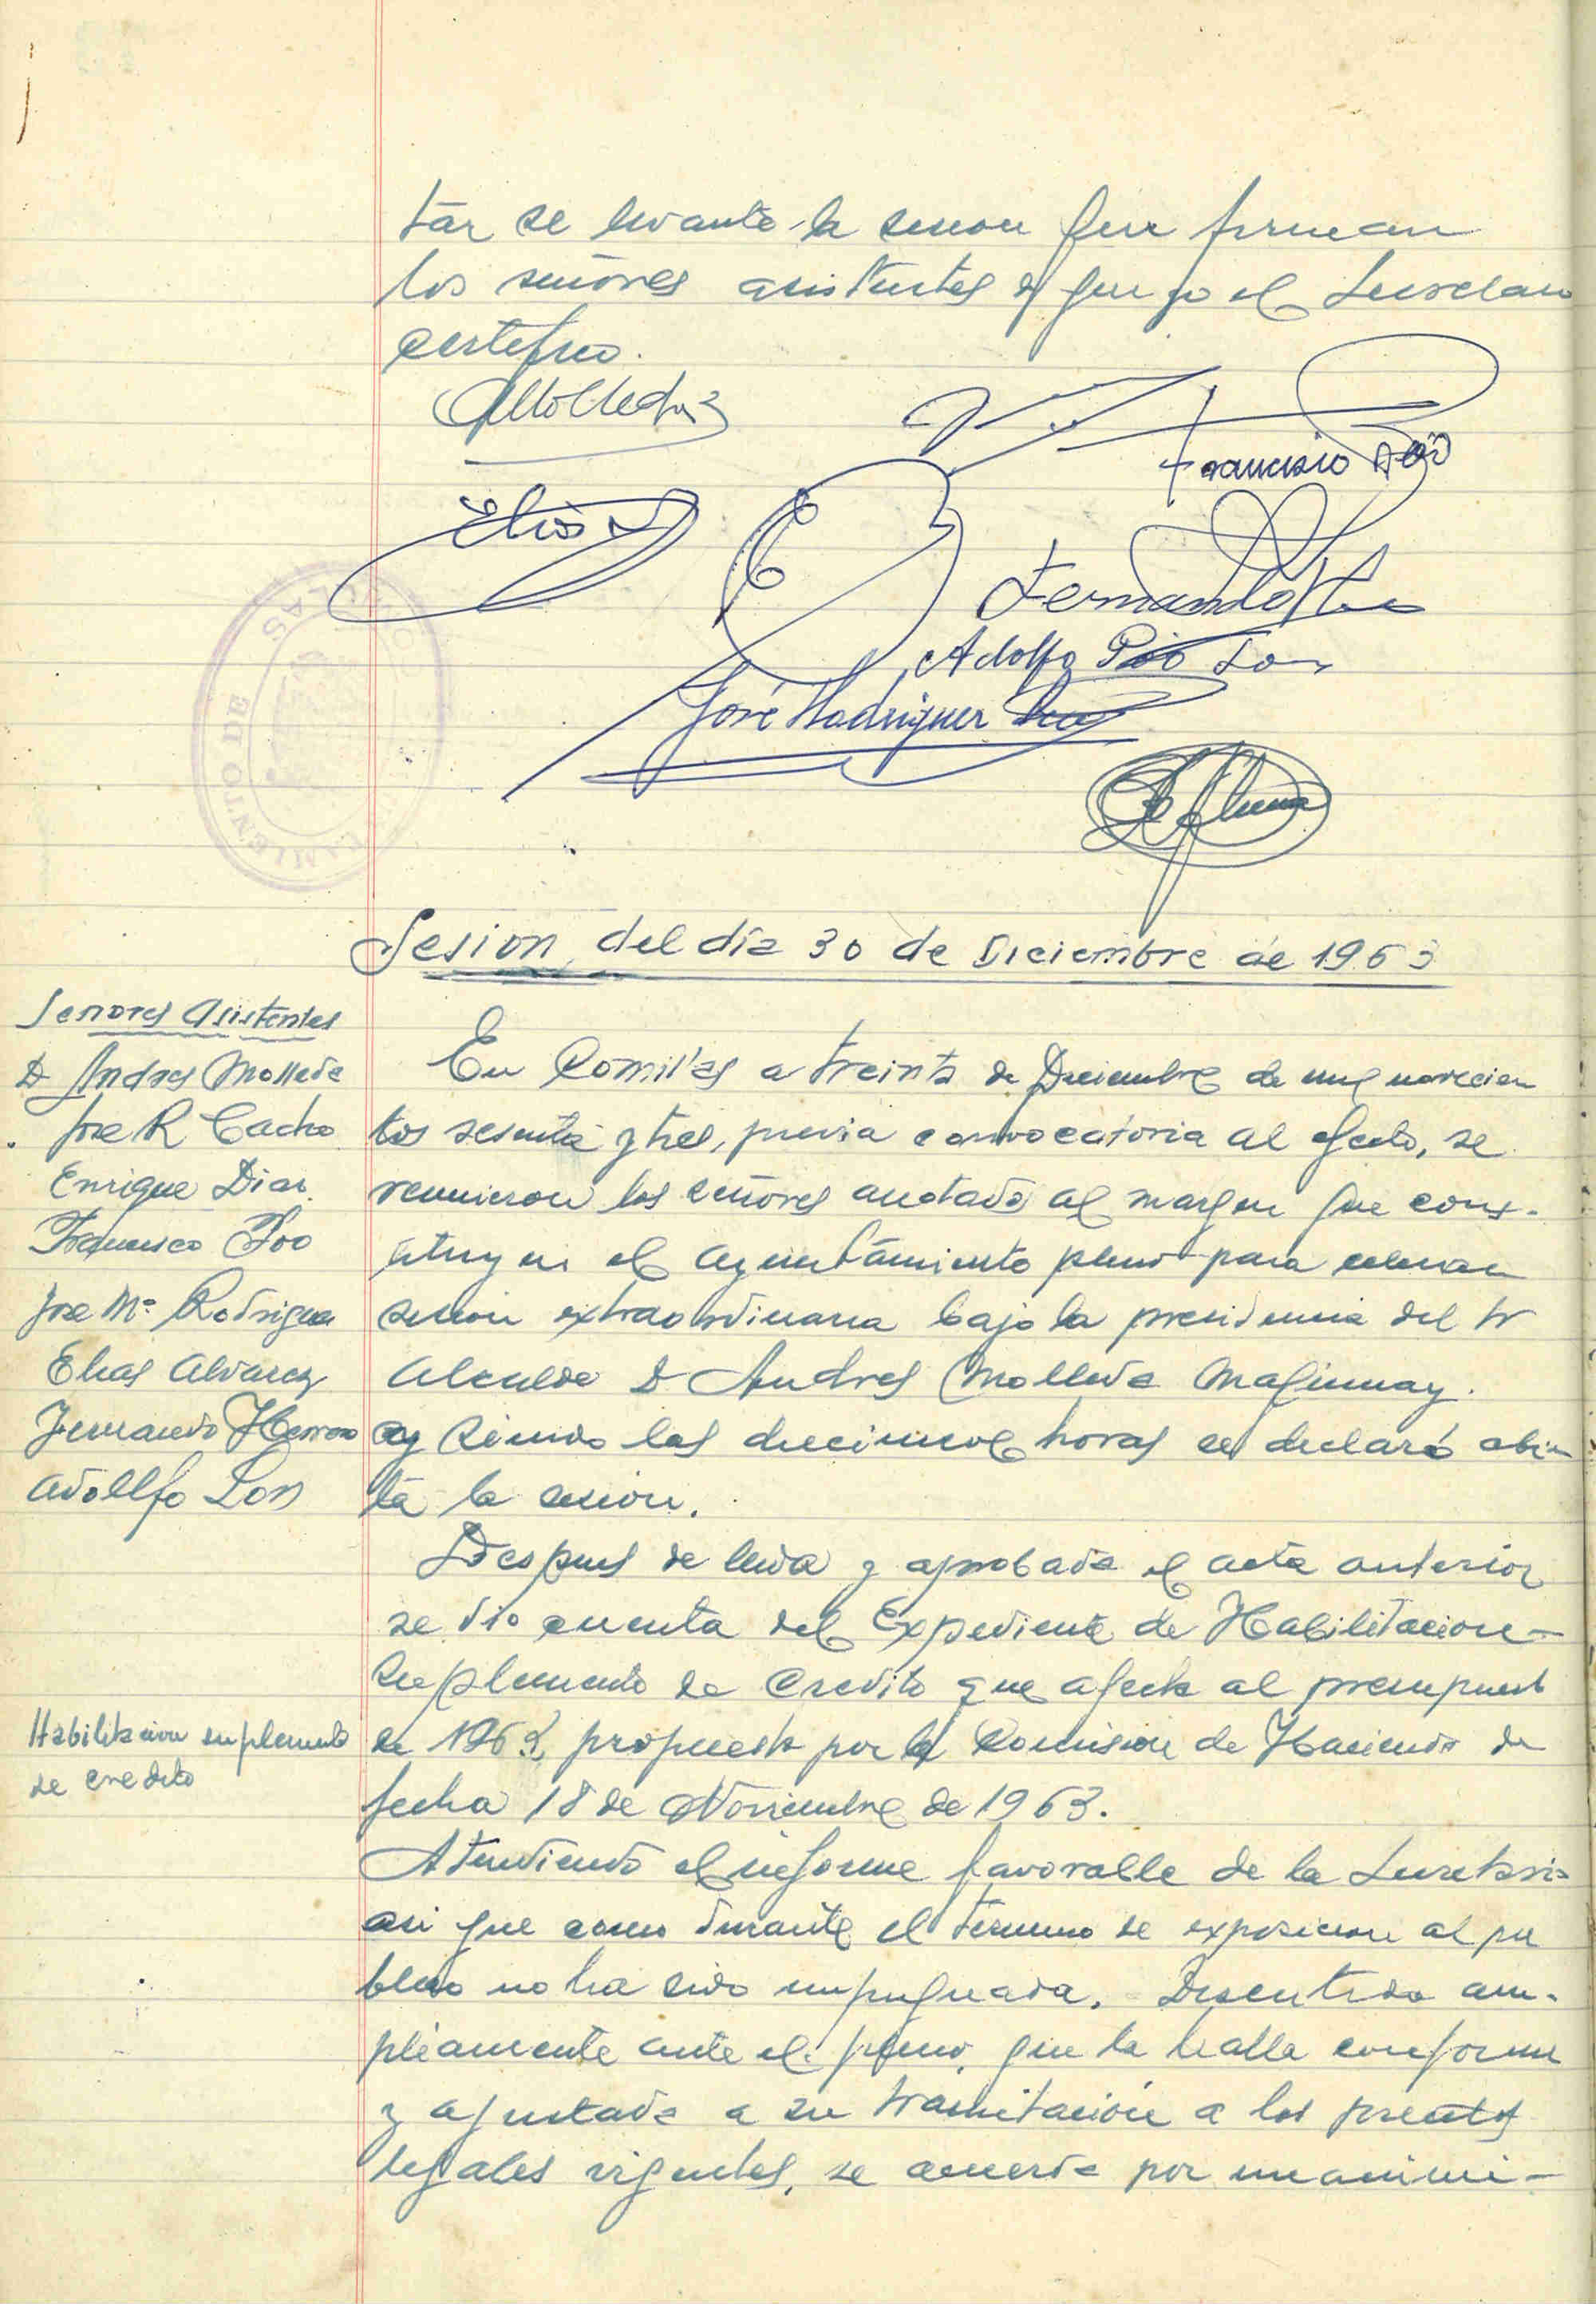 tar se levanto la sesion que firman
los señores asistentes de que yo el Secretario
certifico.
AMolleda
Francisco Poo
Elias
Fernando
Adolfo Pio Son
José Rodriguez
AYUNTAMIENTO DE COMILLAS
Sesion del día 30 de Diciembre de 1963
Senores Asistentes
D Andres Molleda
Jose R Cacho
Enrique Diaz
Francisco Poo
Jose Mª Rodriguez
Elias Alvarez
Fernando Herrero
Adollfo Son
En Comillas a treinta de Diciembre de mil novecien
tos sesenta y tres, previa convocatoria al efecto, se
reunieron los señores anotados al margen que cons-
tituyen el Ayuntamiento pleno para celebrar
sesion extraordinaria bajo la presidencia del Sr
Alcalde D Andres Molleda
y siendo las diecinueve horas se declaró abier
ta la sesion.
Despues de leida y aprobada el acta anterior
se dio cuenta del Expediente de Habilitacion-
Suplemento de Credito que afecta al presupuesto
Habilitacion suplemento
de credito
de 1963, propuesta por la Comision de Hacienda de
fecha 18 de Noviembre de 1963.
Atendiendo el informe favorable de la Secretaria
asi que como durante el termino de exposicion al pu
blico no ha sido impugnada. Discutida am-
pliamente ante el pleno, que la halla conforme
y ajustada a su tramitación a los preceptos
legales vigentes, se acuerda por unanimi-